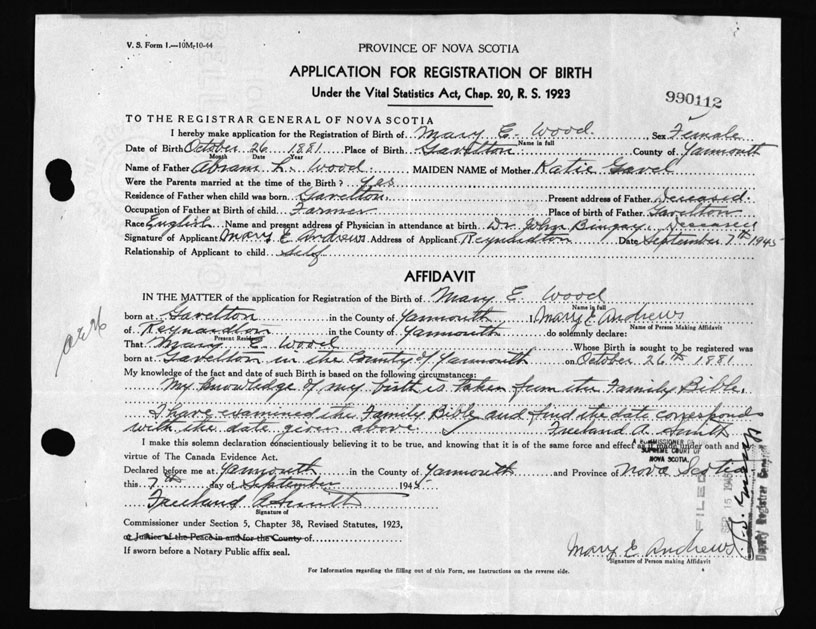 V. S. Form 1.—10M-10-44
PROVINCE OF NOVA SCOTIA
APPLICATION FOR REGISTRATION OF BIRTH
Under the Vital Statistics Act, Chap. 20, R. S. 1923
990112
TO THE REGISTRAR GENERAL OF NOVA SCOTIA
I hereby make application for the Registration of Birth of Mary E. Wood. Sex Female
Name in full
Date of Birth October 26 1881 Place of Birth Gavelton County of Yarmouth
Month Date Year
Name of Father Abram L. Wood. MAIDEN NAME of Mother Katie Gavel
Were the Parents married at the time of the Birth? Yes
Residence of Father when child was born Gavelton. Present address of Father Deceased.
Occupation of Father at Birth of child Farmer Place of birth of Father Gavelton
Race English Name and present address of Physician in attendance at birth Dr. John Bingay, Deceased
Signature of Applicant Mary E Andrews Address of Applicant Reynardton Date September 7th 1945
Relationship of Applicant to child Self
AFFIDAVIT
IN THE MATTER of the application for Registration of the Birth of Mary E. Wood
Name in full
born at Gavelton in the County of Yarmouth I Mary E. Andrews
Name of Person Making Affidavit
of Reynardton in the County of Yarmouth do solemnly declare:
Present Residence
That Mary E. Wood Whose Birth is sought to be registered was
born at Gavelton in the County of Yarmouth on October 26th 1881
My knowledge of the fact and date of Birth is based on the following circumstances:
My knowledge of my birth is taken from the Family Bible.
I have examined the Family Bible and find the date corresponds
with the date given above. Freeland A. Smith
A COMMISSIONER OF
SUPREME COURT OF
NOVA SCOTIA
I make this solemn declaration conscientiously believing it to be true, and knowing that it is of the same force and effect as if made under oath and by
virtue of The Canada Evidence Act.
Declared before me at Yarmouth in the County of Yarmouth and Province of Nova Scotia
this 7th day of September 1945
Freeland A Smith
Signature of
Commissioner under Section 5, Chapter 38, Revised Statutes, 1923,
or Justice of the Peace in and for the County of
If sworn before a Notary Public affix seal.
FILED
Deputy Registrar General
Mary E Andrews.
Signature of Person making Affidavit
For Information regarding the filling out of this Form, see Instructions on the reverse side.